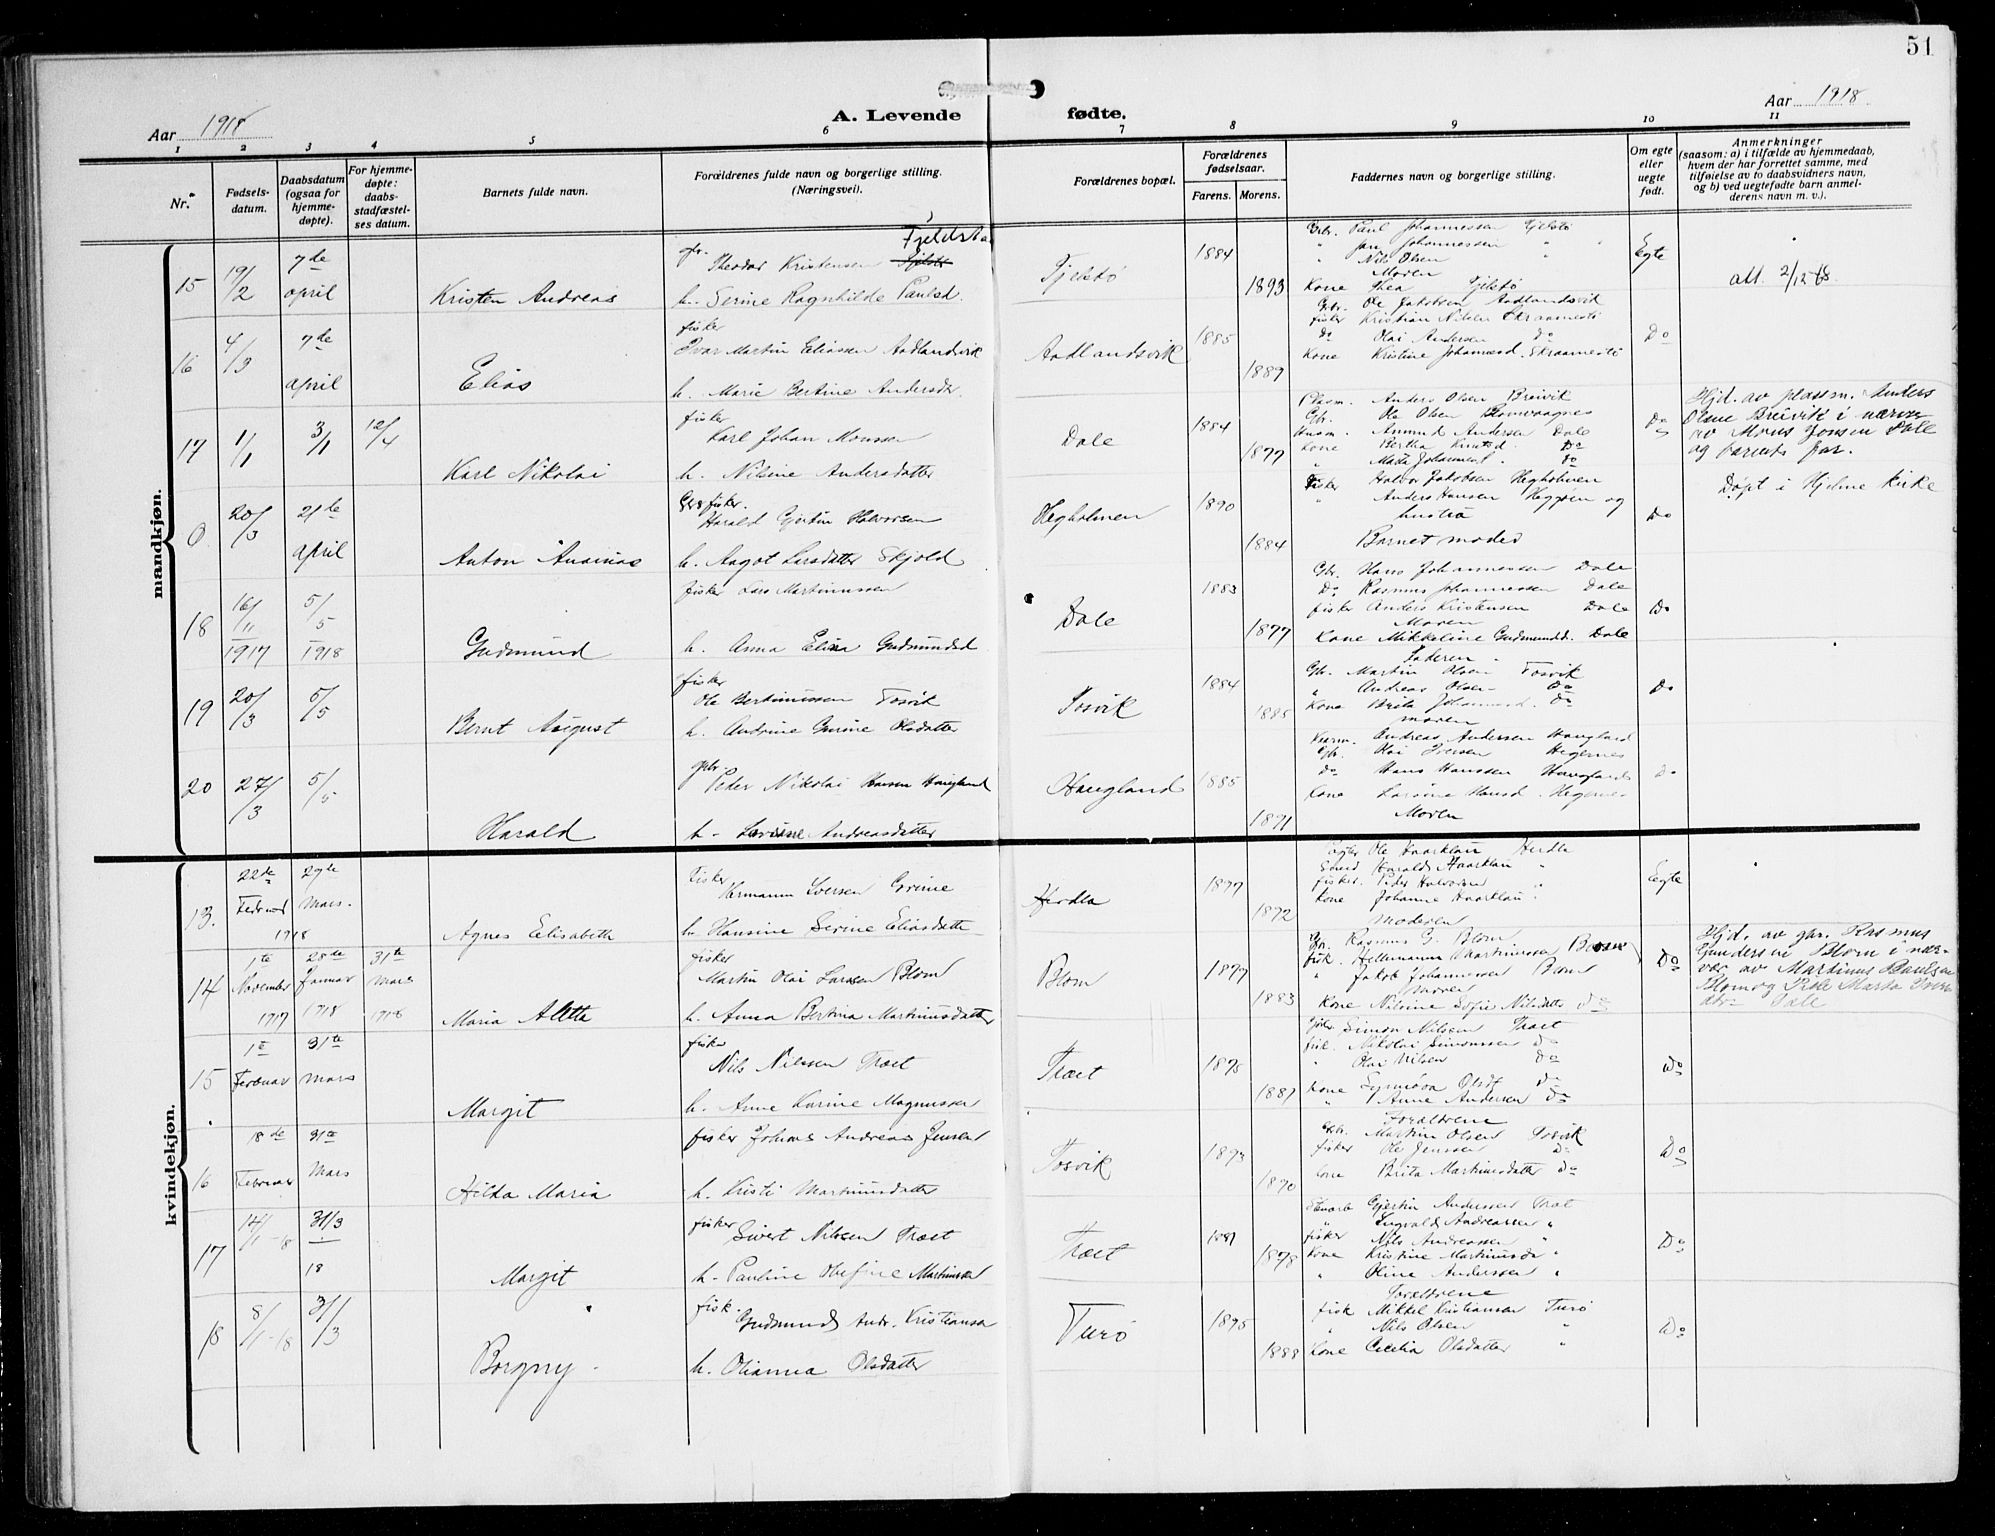 51
Aar 1918
A. Levende fødte.
Aar 1918.
1 2 3 4 5 6 7 8 9 10 11
Nr.
Fødsels-
datum.
Daabsdatum
(ogsaa for
hjemme-
døpte).
For hjemme-
døpte:
daabs-
stadfæstel-
ses datum.
Barnets fulde navn.
Forældrenes fulde navn og borgerlige stilling.
(Næringsvei).
Forældrenes bopæl.
Forældrenes
fødselsaar.
Farens. Morens.
Faddernes navn og borgerlige stilling.
Om egte
eller
uegte
født.
Anmerkninger
(saasom: a) i tilfælde av hjemmedaab,
hvem der har forrettet samme, med
tilføielse av to daabsvidners navn,
og b) ved uegtefødte barn anmel-
derens navn m. v.).
mandkjøn.
15 19/2 7de april
Kristen Andreas
gbr. Theodor Kristensen Fjeldstø
h. Serine Ragnhilde Paulsd.
Tjelstø
1884 1893
Gbr. Paul Johannessen Tjelstø
" Jon Johannessen "
" Nils Olsen
Moren
Kone Thea Tjelstø
Egte
att. 2/12-68.
16 4/3 7de april
Elias
fisker
Ivar Martin Eliassen Aadlandsvik
h. Marie Bertine Andersdtr.
Aadlandsvik
1885 1889
Gbr. Ole Jakobsen Aadlandsvik
fisker Kristian Nilsen Skraamestø
Do Olai Andersen Do
Kone Kristine Johannesd. Skraamestø
Do
17 1/1 3/1 12/4
Karl Nikolai
fisker
Karl Johan Monssen
h. Nilsine Andersdatter
Dale
1884 1877
Plasm. Anders Olsen Breivik
Gbr. Ole Olsen Blomvaagnes
Husm. Anmund Andersen Dale
Kone Bertha Knutsd. Do
" Marta Johannesd. do
Do
Hjd. av plassm. Anders
Olsne Breivik i nærv.
av Mons Jonsen Dale
og barnets far.
0 20/3 21de april
Anton Ananias
Gbr fisker.
Harald Gjertin Halvorsen
h. Aagot Larsdatter Skjold
Hegholmen
1890 1884
fisker Halvor Jakobsen Hegholmen
" Anders Hansen Heggøen og
hustru
Barnet moded
Do
Døpt i Hjelme kirke
18 16/11 1917 5/5 1918
Gudmund
fisker Lars Martinussen
h. Anna Elisa Gudmundsd
Dale
1883 1877
Gbr. Hans Johannessen Dale
Do Rasmus Johannessen Dale
fisker Anders Kristensen Dale
Moren
Kone Mikkeline Gudmundsd. Dale
Faderen
Do
19 20/3 5/5
Bernt August
fisker
Ole Bertinussen Tosvik
h. Andrine Gurine Olsdatter
Tosvik
1884 1885
Gbr. Martin Olsen Tosvik
" Andreas Olsen Do
Kone Brita Johannesd. do
moren
Do
20 27/3 5/5
Harald
gbr.
Peder Nikolai Hansen Haugland
h. Lovise Andreasdatter
Haugland
1885 1891
Andreas Andersen Haugland
Gbr. Olai Iversen Hegernes
do Hans Hanssen Haugland
Kone Larsine Hansd. Hegernes
Moren
Do
kvindekjøn.
13. 22de Februar 1918 29de Mars.
Agnes Elisabeth
Fisker
Hermann Iversen Grime
h. Hansine Serine Eliasdattr
Herdla
1877 1872
Ole Haarklau Herdla
Harald Haarklau "
fisker. Peder Halvorsen "
Kone Johanne Haarklau "
Moderen
Egte
14 1te November 1917 28de Januar 1918 31te Mars 1918
Maria Aletta
fisker
Martin Olai Larssen Blom
h. Anna Bertina Martinusdatter
Blom
1877 1883
Gbr. Rasmus G. Blom
fisk. Hellemann Martinussen
" Jakob Johannessen Blom
Moren
Kone Nilsine Sofie Nilsdatter do
Do
Hjd. av gbr. Rasmus
Gundersen Blom i nær-
vær av Martinus Paulsen
Blom og Marta Iversd
Dale
15 1te Februar 31te Mars
Margit
fisker
Nils Nilssen Træt
h. Anne Karine Magnussen
Træt
1875 1881
Gbr. Simon Nilssen Træt
fisk. Mikolai Simonssen do
" Olai Nilsen Do
Kone Synnøva Olsdt Do
" Anne Andersen do
Do
16 18de Februar 31te Mars
Hilda Maria
fisker Johans Andreas Jensen
h. Kristi Martinusdatter
Tosvik
1893 1890
Forældrene
Gbr. Martin Olsen Tosvik
fisker Ole Jenssen Do
kone Brita Martinusdatter do
Do
17 14/1-18 31/3 18
Margit
fisker
Sivert Nilssen Træt
h. Pauline Olefine Martinsen
Træt
1881 1878
Gjertin Andersen Træt
" Ingvald Andreassen "
fisker Nils Andreassen "
Kone Kristine Martinusda "
" Oline Anderssen "
Do
18 8/1-18 31/3
Borgny
fisk.
Gudmund Andr. Kristiansen
h. Olianna Olsdatter
Turø
1895 1888
Forældrene
fisk Mikkel Kristiansen Turø
" Nils Olsen "
Kone Cecelia Olsdatter "
Do